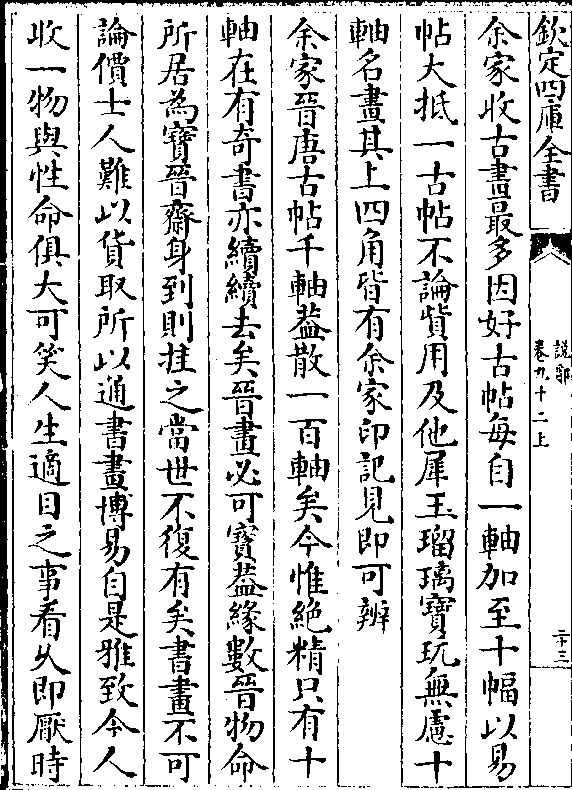 欽定四庫全書
說郛
卷九十二上
二十三
余家收古畫最多因好古帖每自一軸加至十幅以易
帖大抵一古帖不論貲用及他犀玉瑠璃寶玩無慮十
軸名畫其上四角皆有余家印記見即可辨
余家晉唐古帖千軸蓋散一百軸矣今惟絶精只有十
軸在有奇書亦續續去矣晉畫必可寶蓋緣數晉物命
所居為寶晉齋身到則挂之當世不復有矣書畫不可
論價士人難以貨取所以通書畫博易自是雅致今人
收一物與性命俱大可笑人生適目之事看久即厭時